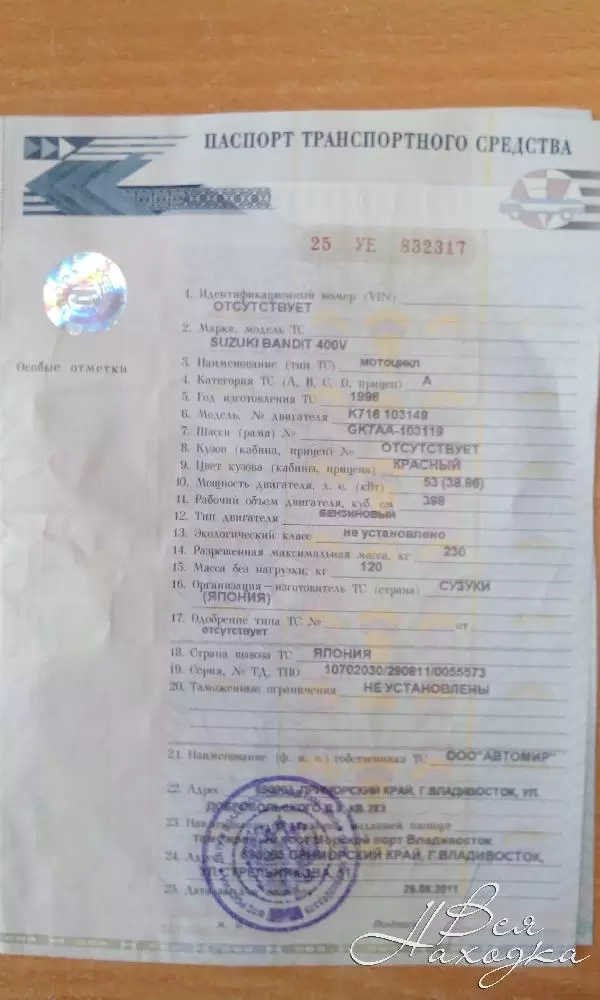 ПАСПОРТ ТРАНСПОРТНОГО СРЕДСТВА
25 УЕ 832317
Особые отметки
1. Идентификационный номер (VIN)
ОТСУТСТВУЕТ
2. Марка, модель ТС
SUZUKI BANDIT 400V
3. Наименование (тип ТС) мотоцикл
4. Категория ТС (A, B, C, D, прицеп) А
5. Год изготовления ТС 1996
6. Модель, № двигателя K716 103149
7. Шасси (рама) № GK7AA-103119
8. Кузов (кабина, прицеп) № ОТСУТСТВУЕТ
9. Цвет кузова (кабины, прицепа) КРАСНЫЙ
10. Мощность двигателя, л. с. (кВт) 53 (38.96)
11. Рабочий объем двигателя, куб. см 398
12. Тип двигателя БЕНЗИНОВЫЙ
13. Экологический класс не установлено
14. Разрешенная максимальная масса, кг 230
15. Масса без нагрузки, кг 120
16. Организация – изготовитель ТС (страна) СУЗУКИ
(ЯПОНИЯ)
17. Одобрение типа ТС № от
отсутствует
18. Страна вывоза ТС ЯПОНИЯ
19. Серия, № ТД, ТПО 10702030/290811/0055573
20. Таможенные ограничения НЕ УСТАНОВЛЕНЫ
21. Наименование (ф. и. о.) собственника ТС ООО"АВТОМИР"
22. Адрес ПРИМОРСКИЙ КРАЙ, Г.ВЛАДИВОСТОК, УЛ.
ДОБРОВОЛЬСКОГО
23. паспорт
Морской порт Владивосток
24. Адрес ПРИМОРСКИЙ КРАЙ, Г.ВЛАДИВОСТОК,
УЛ.СТРЕЛЬНИКОВА,
25. Дата 29.08.2011
м.
Вся
Находка